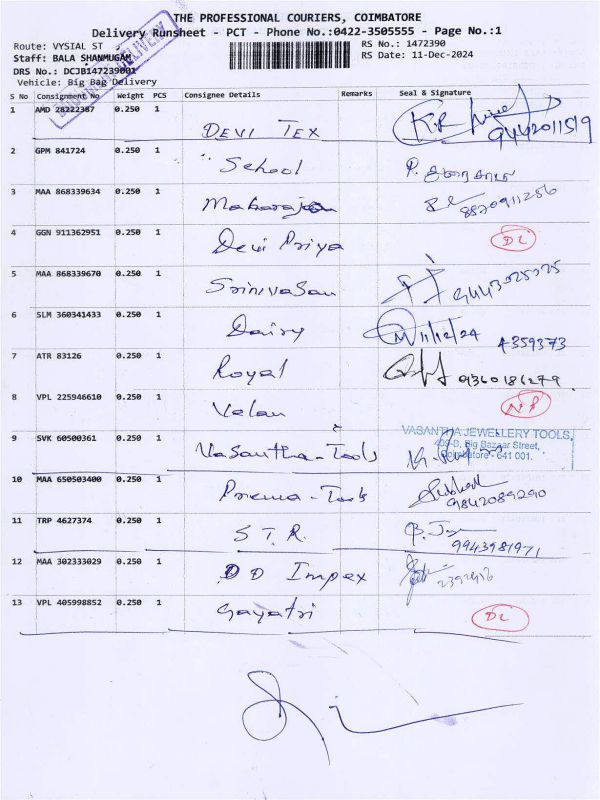 THE PROFESSIONAL COURIERS, COIMBATORE
Delivery Runsheet - PCT - Phone No.:0422-3505555 - Page No.:1
Route: VYSIAL ST
RS No.: 1472390
Staff: BALA SHANMUGAM
RS Date: 11-Dec-2024
DRS No.: DCJB147239001
Vehicle: Big Bag Delivery
DELIVERY
S No Consignment No Weight PCS Consignee Details Remarks Seal & Signature
1 AMD 28222387 0.250 1 DEVI TEX K.R 9442011519
2 GPM 841724 0.250 1 " School
3 MAA 868339634 0.250 1 Maharaja 8870911256
4 GGN 911362951 0.250 1 Devi Priya DL
5 MAA 868339670 0.250 1 Srinivasan 9443025225
6 SLM 360341433 0.250 1 Dairy 11/12/24 4359373
7 ATR 83126 0.250 1 Royal 09360186279
8 VPL 225946610 0.250 1 Velan NP
9 SVK 60500361 0.250 1 Vasantha-Tools
VASANTHA JEWELLERY TOOLS,
409-B, Big Bazaar Street,
Coimbatore - 641 001.
10 MAA 650503400 0.250 1 Prema-Tools 9842089290
11 TRP 4627374 0.250 1 S.T.R. 9943981971
12 MAA 302333029 0.250 1 DD Impex 2392456
13 VPL 405998852 0.250 1 Gayatri DL